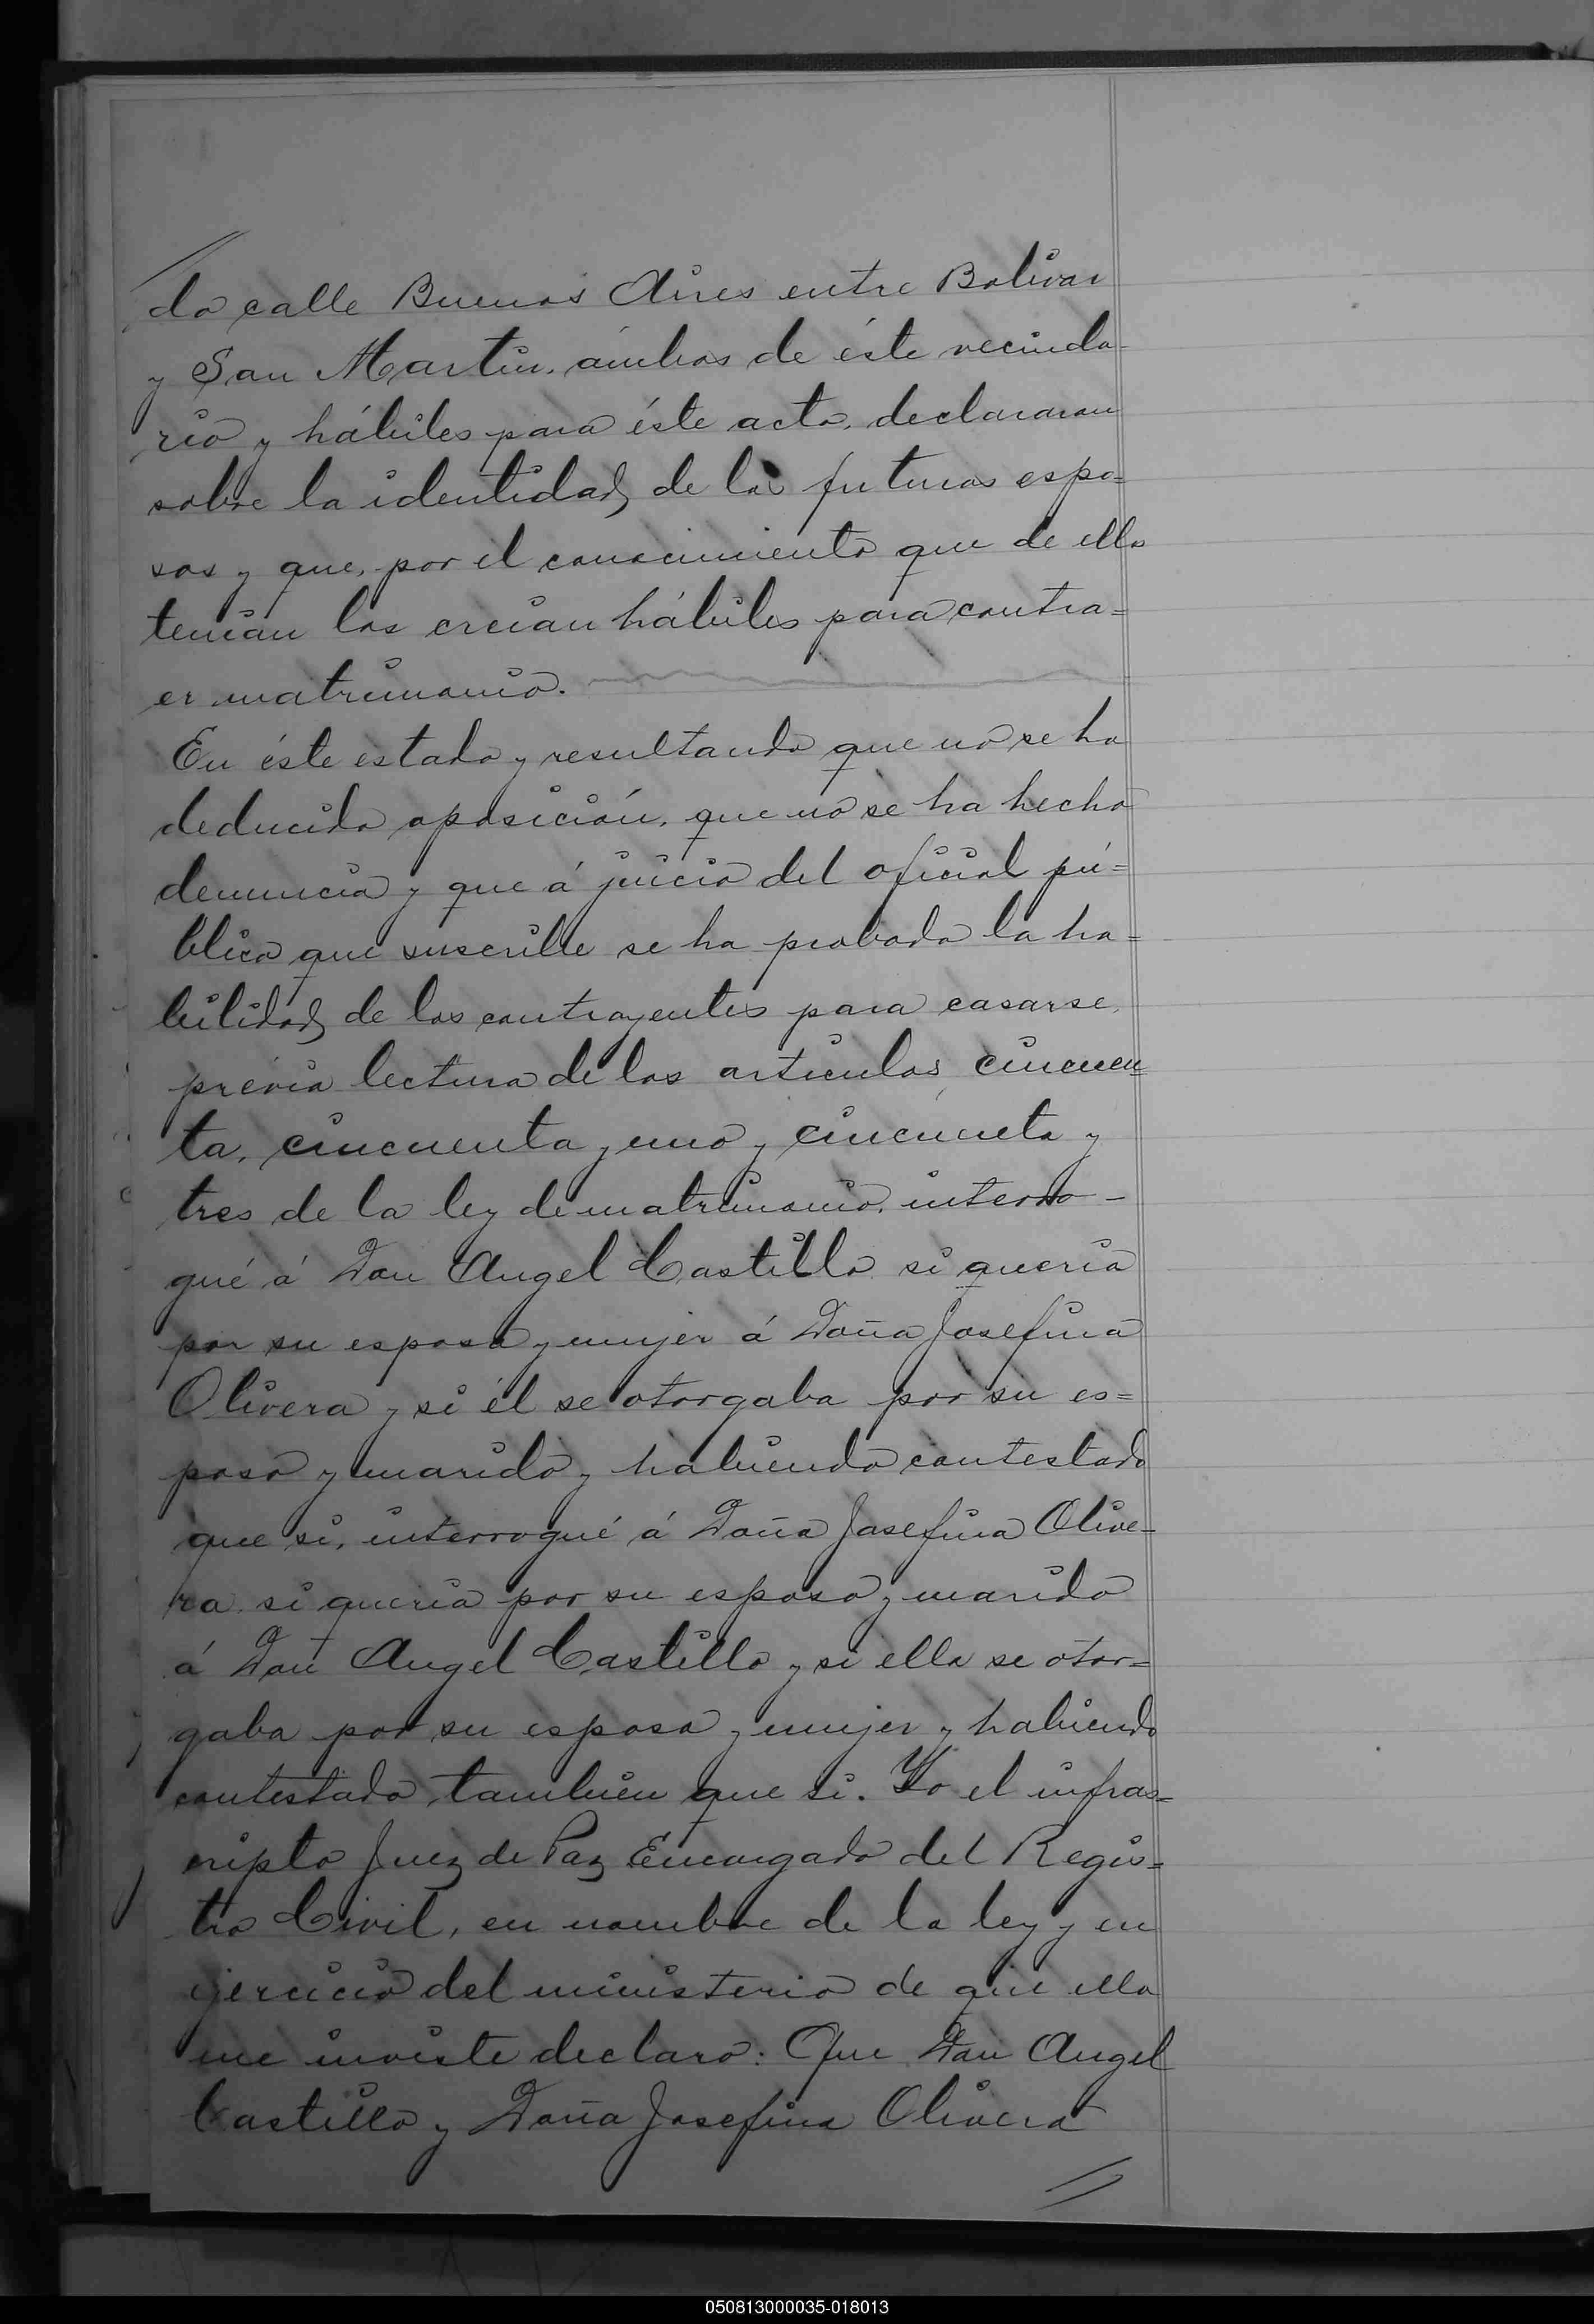 do calle Buenos Aires entre Bolivar
y San Martin, ámbos de éste vecinda-
rio y hábiles para éste acto, declararon
sobre la identidad de los futuros espo=
sos y que, por el conocimiento que de ellos
tenian los creian hábiles para contra=
er matrimonio.
En éste estado y resultando que no se ha
deducido oposición, que no se ha hecho
denuncia y que á juicio del oficial pú=
blico que suscribe se ha probado la ha=
bilidad de los contrayentes para casarse,
prévia lectura de los articulos cincuen=
ta, cincuenta y uno y cincuenta y
tres de la ley de matrimonio, interro-
gué á Don Angel Castillo si queria
por su esposa y mujer á Doña Josefina
Olivera y si él se otorgaba por su es=
poso y marido y habiendo contestado
que si, interrogué á Doña Josefina Olive-
ra si queria por su esposo y marido
á Don Angel Castillo y si ella se otor=
gaba por su esposa y mujer y habiendo
contestado, tambien que si. Yo el infras=
cripto Juez de Paz Encargado del Regis=
tro Civil, en nombre de la ley y en
ejercicio del ministerio de que ella
me inviste declaro: Que Don Angel
Castillo y Doña Josefina Olivera
050813000035-018013